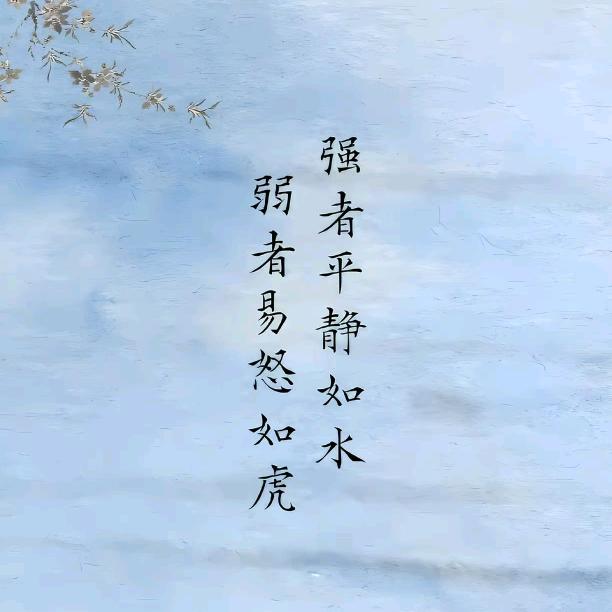 强者平静如水
弱者易怒如虎